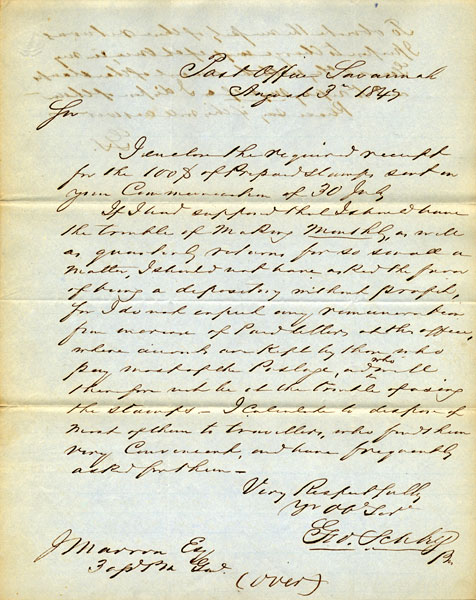 Post Office Savannah
August 3rd 1847
Sir
I enclose the required receipt
for the 100$ of Prepaid Stamps, sent in
your Communication of 30 July
If I had supposed that I should have
the trouble of making Monthly, as well
as quarterly returns for so small a
matter, I should not have asked the favor
of being a depository without profit,
for I do not expect any remuneration
from increase of Paid letters at this office,
where accounts are kept by those who
pay most of the Postage, and who will
therefore not be at the trouble of using
the stamps – I calculate to dispose of
most of them to travellers, who find them
very Convenient, and have frequently
asked for them –
Very Respectfully
Yr Ob Sert
Geo. Schley
PM
J Marron Esq
3 a P M Genl.
(over)